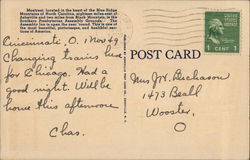 Montreat, located in the heart of the Blue Ridge
Mountains of North Carolina, eighteen miles east of
Asheville and two miles from Black Mountain, is the
Southern Presbyterian Assembly Grounds.
Assembly Inn is open the year 'round. This is one of
the most beautiful, picturesque, and healthful sec-
tions of America.
Cincinnati, O. 1 Nov 49
Changing trains here
for Chicago. Had a
good night. Will be
home this afternoon
Chas.
POST CARD
Mrs J.W.
1473 Beall
Wooster,
O
1 CENT 1